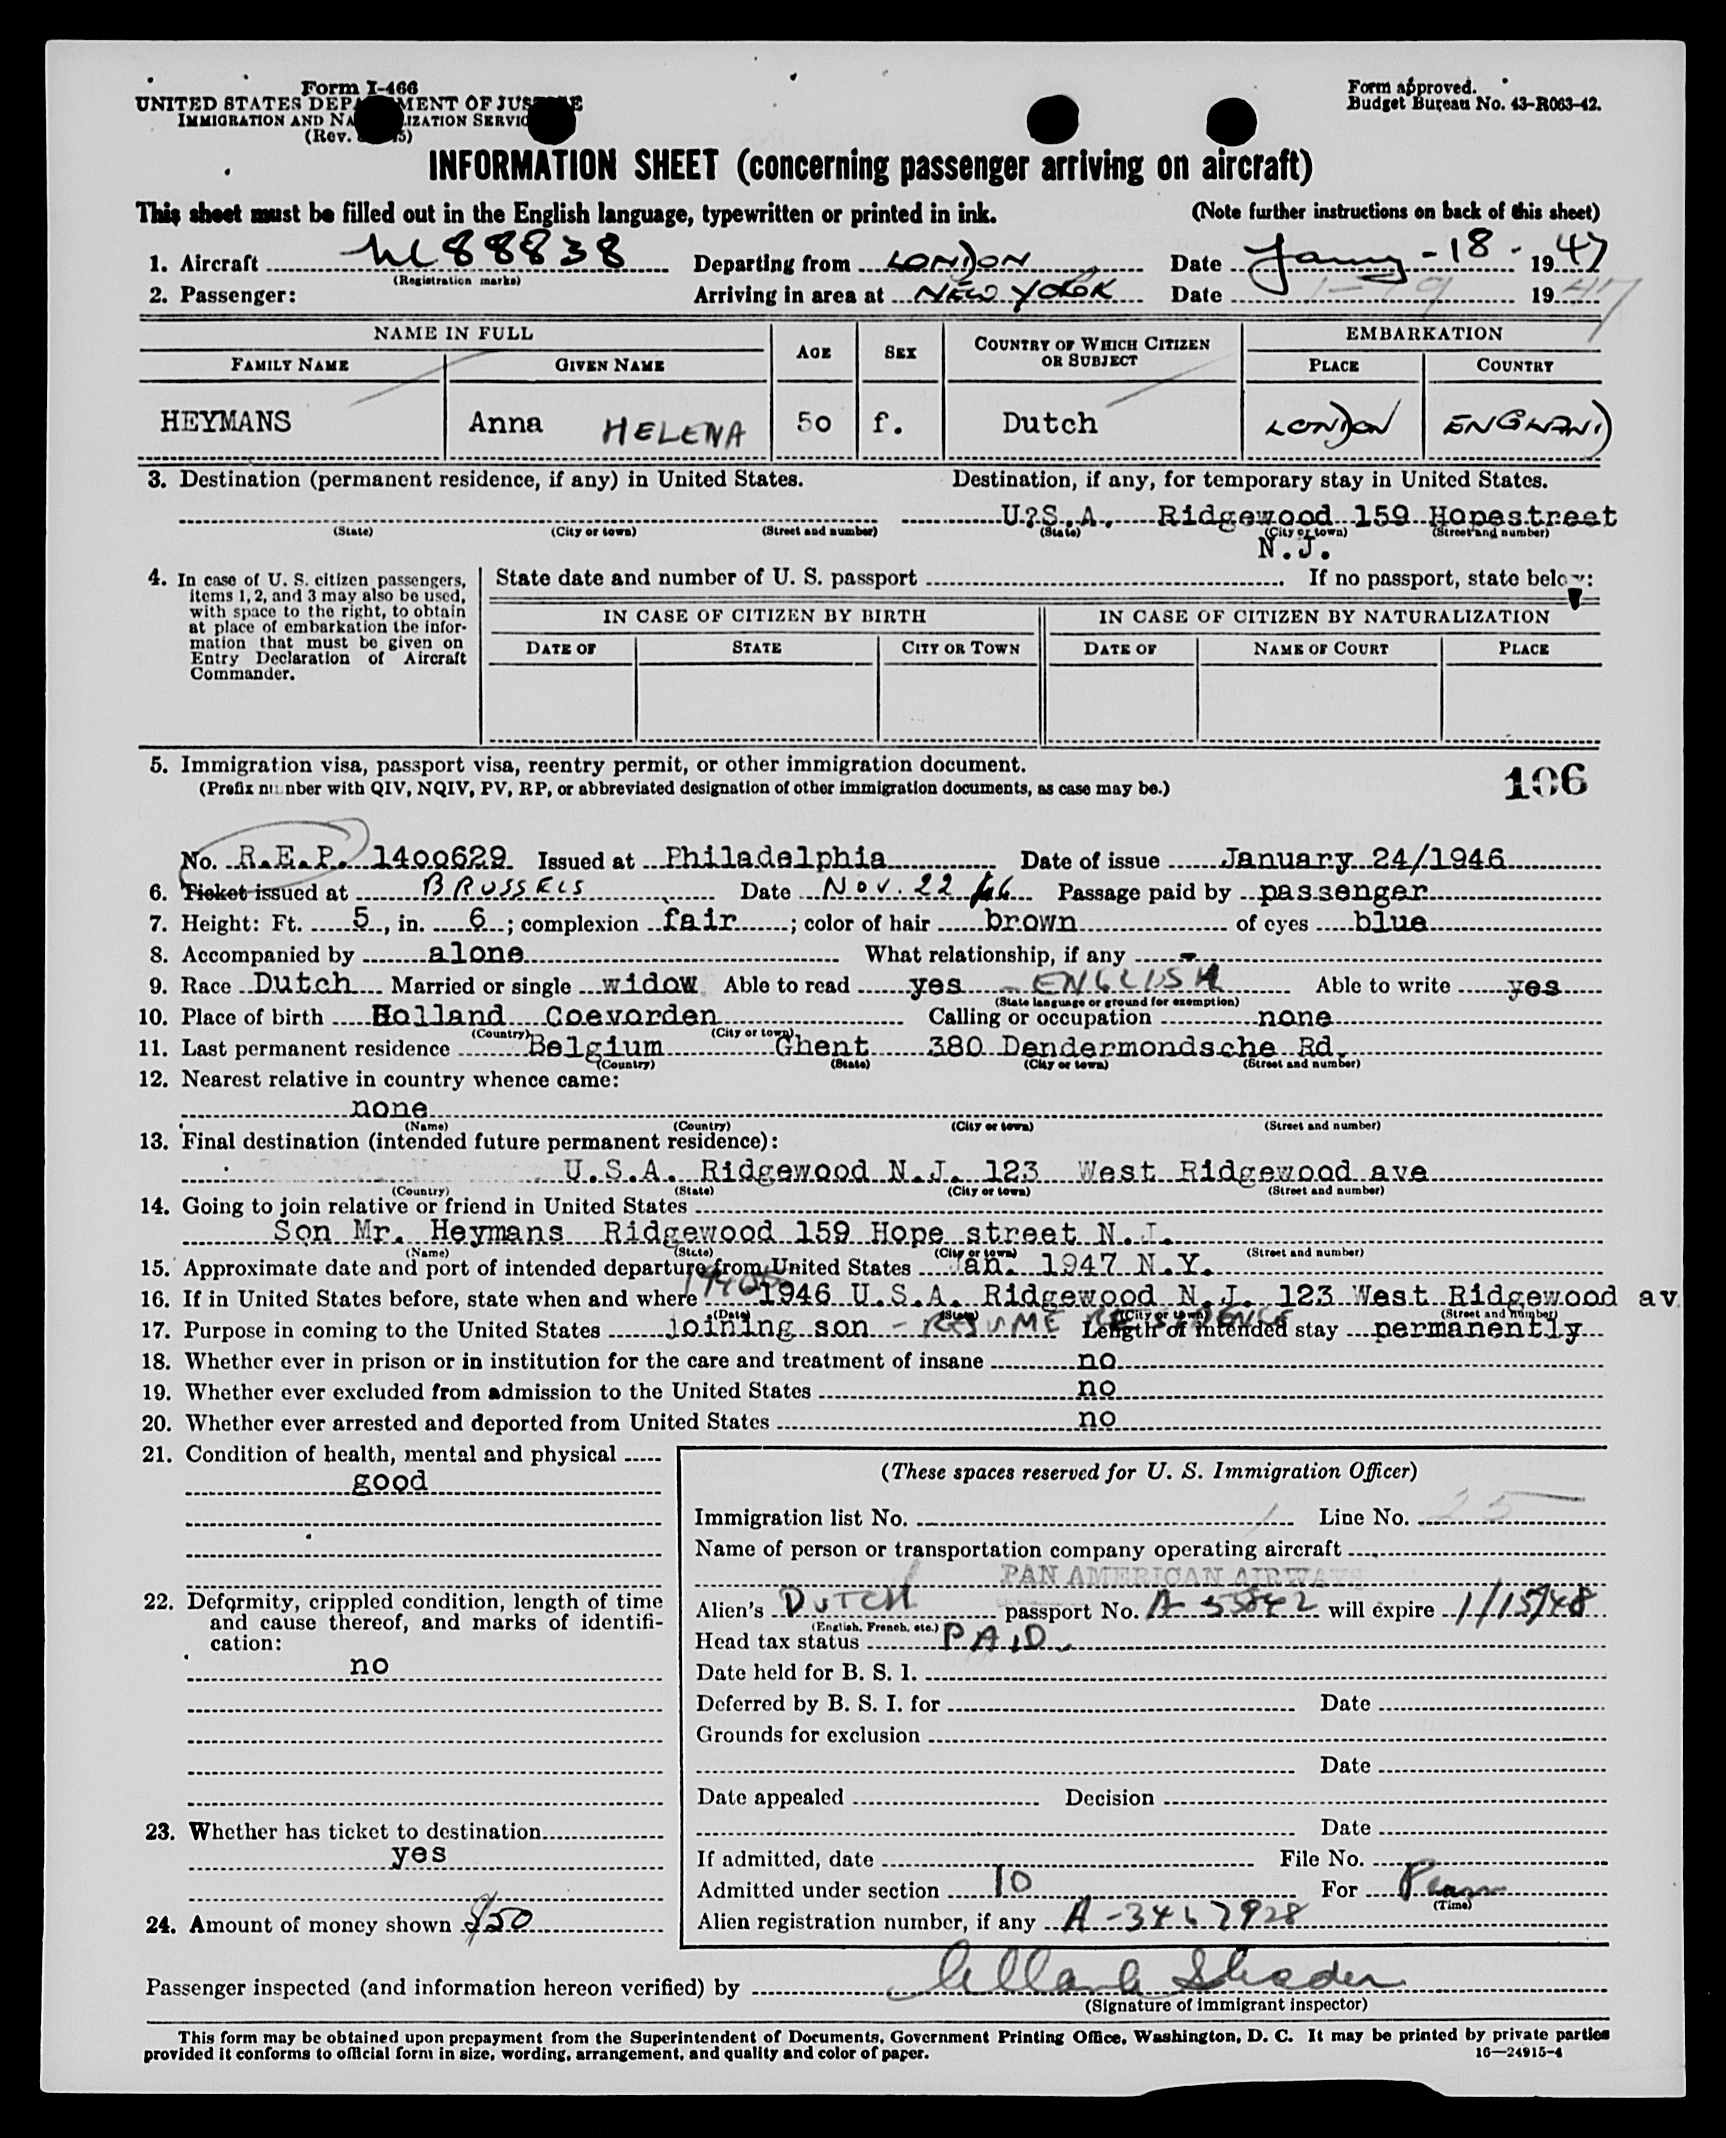 Form I-466
UNITED STATES DEPARTMENT OF JUSTICE
IMMIGRATION AND NATURALIZATION SERVICE
(Rev.
Form approved.
Budget Bureau No. 43-R063-42.
INFORMATION SHEET (concerning passenger arriving on aircraft)
This sheet must be filled out in the English language, typewritten or printed in ink. (Note further instructions on back of this sheet)
1. Aircraft NC 88838 Departing from LONDON Date Jany - 18 - 1947
(Registration marks)
2. Passenger: Arriving in area at NEW YORK Date 1-19 1947
NAME IN FULL AGE SEX COUNTRY OF WHICH CITIZEN OR SUBJECT EMBARKATION
FAMILY NAME GIVEN NAME PLACE COUNTRY
HEYMANS Anna HELENA 50 f. Dutch LONDON ENGLAND
3. Destination (permanent residence, if any) in United States. Destination, if any, for temporary stay in United States.
U?S.A. Ridgewood 159 Hopestreet
(State) (City or town) (Street and number) (State) (City or town) (Street and number)
N.J.
4. In case of U. S. citizen passengers, items 1, 2, and 3 may also be used, with space to the right, to obtain at place of embarkation the information that must be given on Entry Declaration of Aircraft Commander.
State date and number of U. S. passport If no passport, state below:
IN CASE OF CITIZEN BY BIRTH IN CASE OF CITIZEN BY NATURALIZATION
DATE OF STATE CITY OR TOWN DATE OF NAME OF COURT PLACE
5. Immigration visa, passport visa, reentry permit, or other immigration document.
(Prefix number with QIV, NQIV, PV, RP, or abbreviated designation of other immigration documents, as case may be.)
106
No. R.E.P. 1400629 Issued at Philadelphia Date of issue January 24/1946
6. Ticket issued at BRUSSELS Date Nov. 22 46 Passage paid by passenger
7. Height: Ft. 5, in. 6; complexion fair; color of hair brown of eyes blue
8. Accompanied by alone What relationship, if any -
9. Race Dutch Married or single widow Able to read yes - ENGLISH Able to write yes
(State language or ground for exemption)
10. Place of birth Holland Coevorden Calling or occupation none
(Country) (City or town)
11. Last permanent residence Belgium Ghent 380 Dendermondsche Rd.
(Country) (State) (City or town) (Street and number)
12. Nearest relative in country whence came:
none
(Name) (Country) (City or town) (Street and number)
13. Final destination (intended future permanent residence):
U.S.A. Ridgewood N.J. 123 West Ridgewood ave
(Country) (State) (City or town) (Street and number)
14. Going to join relative or friend in United States
Son Mr. Heymans Ridgewood 159 Hope street N.J.
(Name) (State) (City or town) (Street and number)
15. Approximate date and port of intended departure from United States Jan. 1947 N.Y.
16. If in United States before, state when and where 1946 U.S.A. Ridgewood N.J. 123 West Ridgewood av
(Date) (State) (City or town) (Street and number)
17. Purpose in coming to the United States joining son - RESUME RESIDENCE Length of intended stay permanently
18. Whether ever in prison or in institution for the care and treatment of insane no
19. Whether ever excluded from admission to the United States no
20. Whether ever arrested and deported from United States no
21. Condition of health, mental and physical
good
22. Deformity, crippled condition, length of time and cause thereof, and marks of identification:
no
23. Whether has ticket to destination
yes
24. Amount of money shown $50
(These spaces reserved for U. S. Immigration Officer)
Immigration list No. 1 Line No. 25
Name of person or transportation company operating aircraft
PAN AMERICAN AIRWAYS
Alien's DUTCH passport No. A 55842 will expire 1/15/48
(English, French, etc.)
Head tax status PAID
Date held for B. S. I.
Deferred by B. S. I. for Date
Grounds for exclusion
Date
Date appealed Decision
Date
If admitted, date File No.
Admitted under section 10 For Perm
(Time)
Alien registration number, if any A-3467928
Passenger inspected (and information hereon verified) by
(Signature of immigrant inspector)
This form may be obtained upon prepayment from the Superintendent of Documents, Government Printing Office, Washington, D. C. It may be printed by private parties
provided it conforms to official form in size, wording, arrangement, and quality and color of paper. 16—24915-4